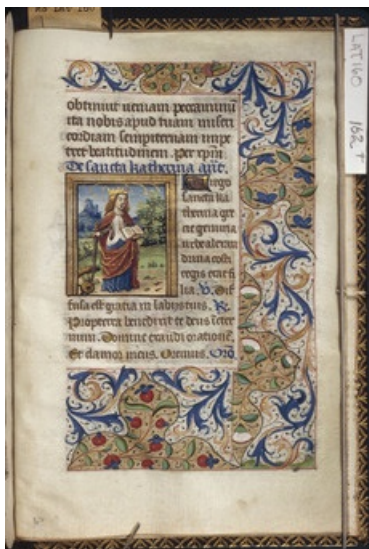 obtinuit veniam peccaminū
ita nobis apud tuam miseri
cordiam sempiternam impe
tret beatitudinem. Per xpm̄
De sancta katherina añt.
Virgo
sancta ka
therina gre
cie gemma
urbe alexan
drina costi
regis erat fi
lia. V. Dif
fusa est gratia in labijs tuis. R.
Propterea benedixit te deus i eter
num. Domine exaudi orationē.
Et clamor meus. Oremus. Orō
LAT 160
162 r